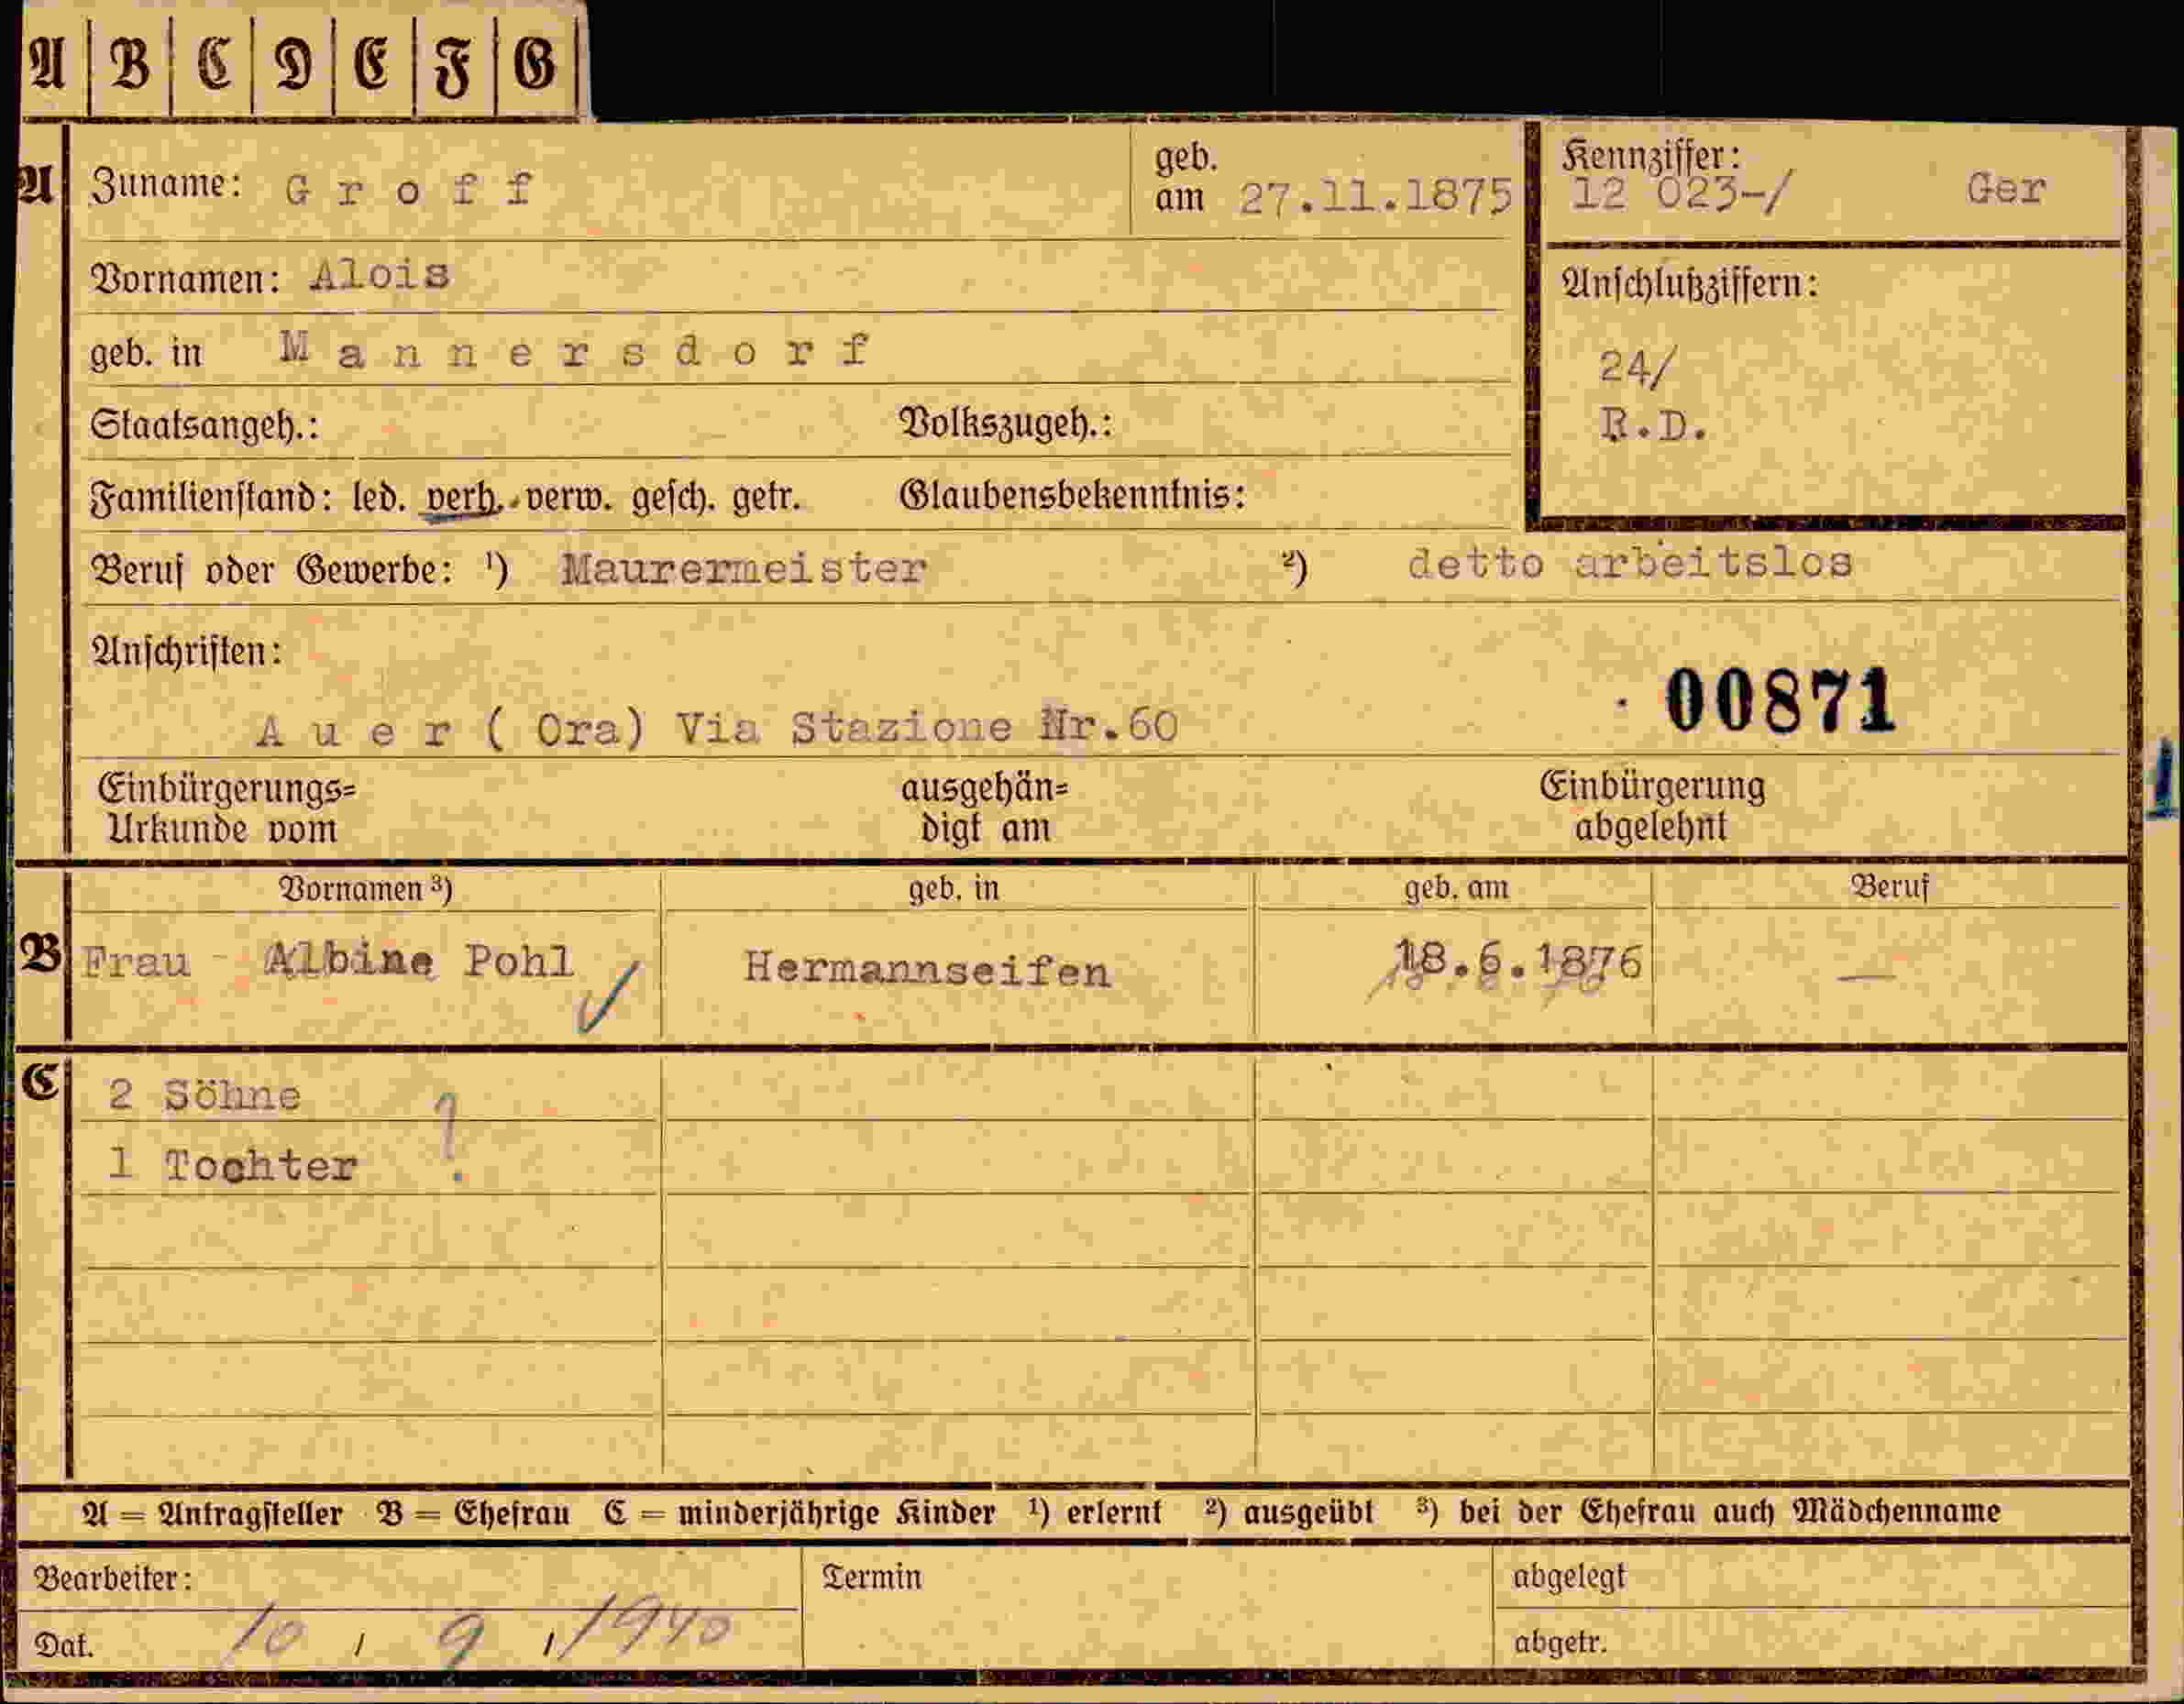 A B C D E F G
A Zuname: Groff geb. am 27.11.1875 Kennziffer: 12 023-/ Ger
Vornamen: Alois Anschlußziffern:
geb. in Mannersdorf 24/
Staatsangeh.: Volkszugeh.: R.D.
Familienstand: led. verh. verw. gesch. getr. Glaubensbekenntnis:
Beruf oder Gewerbe: ¹) Maurermeister ²) detto arbeitslos
Anschriften:
Auer ( Ora) Via Stazione Nr.60 00871
Einbürgerungs= ausgehän= Einbürgerung
Urkunde vom digt am abgelehnt
Vornamen ³) geb. in geb. am Beruf
B Frau - Albine Pohl Hermannseifen 18.6.1876 —
C 2 Söhne ?
1 Tochter
A = Antragsteller B = Ehefrau C = minderjährige Kinder ¹) erlernt ²) ausgeübt ³) bei der Ehefrau auch Mädchenname
Bearbeiter: Termin abgelegt
Dat. 10 / 9 / 1940 abgetr.